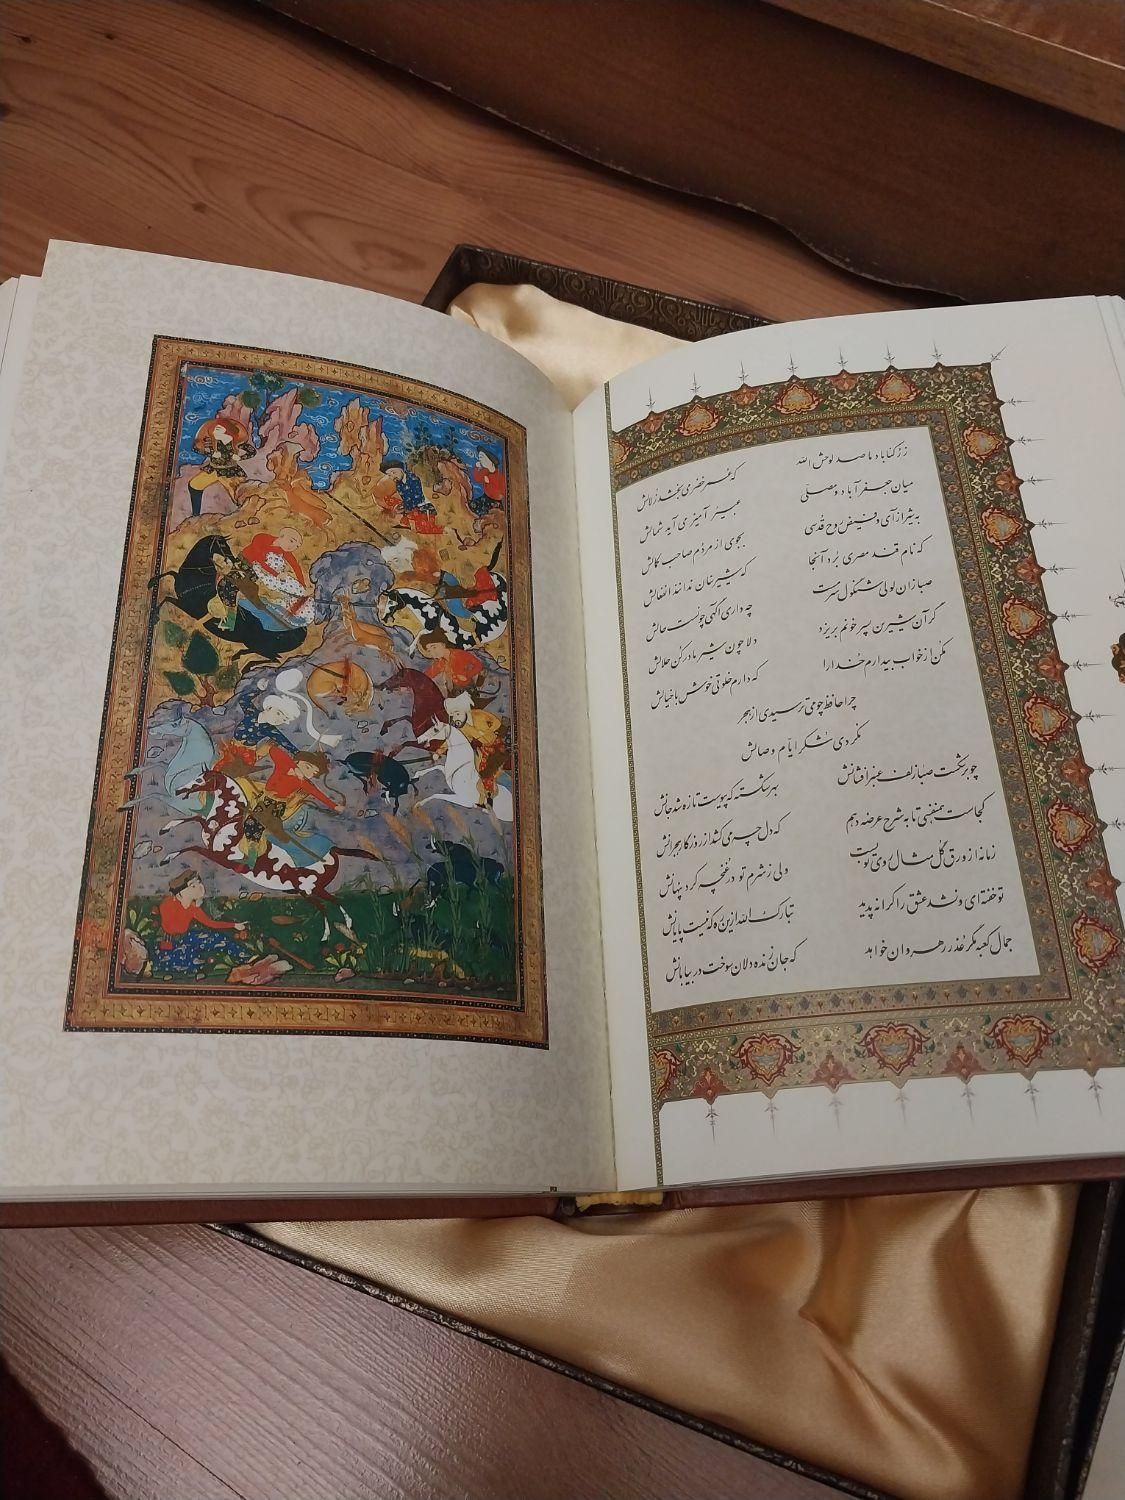 ز رکناباد ما صد لوحش الله که عمر خضر می‌بخشد زلالش
میان جعفرآباد و مصلی عبیر آمیز می‌آید شمالش
به شیراز آی و فیض روح قدسی بجوی از مردم صاحب کمالش
که نام قند مصری برد آنجا که شیرینان ندادند انفعالش
صبا زان لولی شنگول سرمست چه داری آگهی چونست حالش
گر آن شیرین پسر خونم بریزد دلا چون شیر مادر کن حلالش
مکن از خواب بیدارم خدا را که دارم خلوتی خوش با خیالش
چرا حافظ چو می‌ترسیدی از هجر
نکردی شکر ایام وصالش
چو برشکست صبا زلف عنبر افشانش بهر شکسته که پیوست تازه شد جانش
کجاست همنفسی تا به شرح عرضه دهم که دل چه می‌کشد از روزگار هجرانش
زمانه از ورق گل مثال روی تو بست ولی ز شرم تو در غنچه کرد پنهانش
تو خفته‌ای و نشد عشق را کرانه پدید تبارک الله ازین ره که نیست پایانش
جمال کعبه مگر عذر رهروان خواهد که جان زنده دلان سوخت در بیابانش